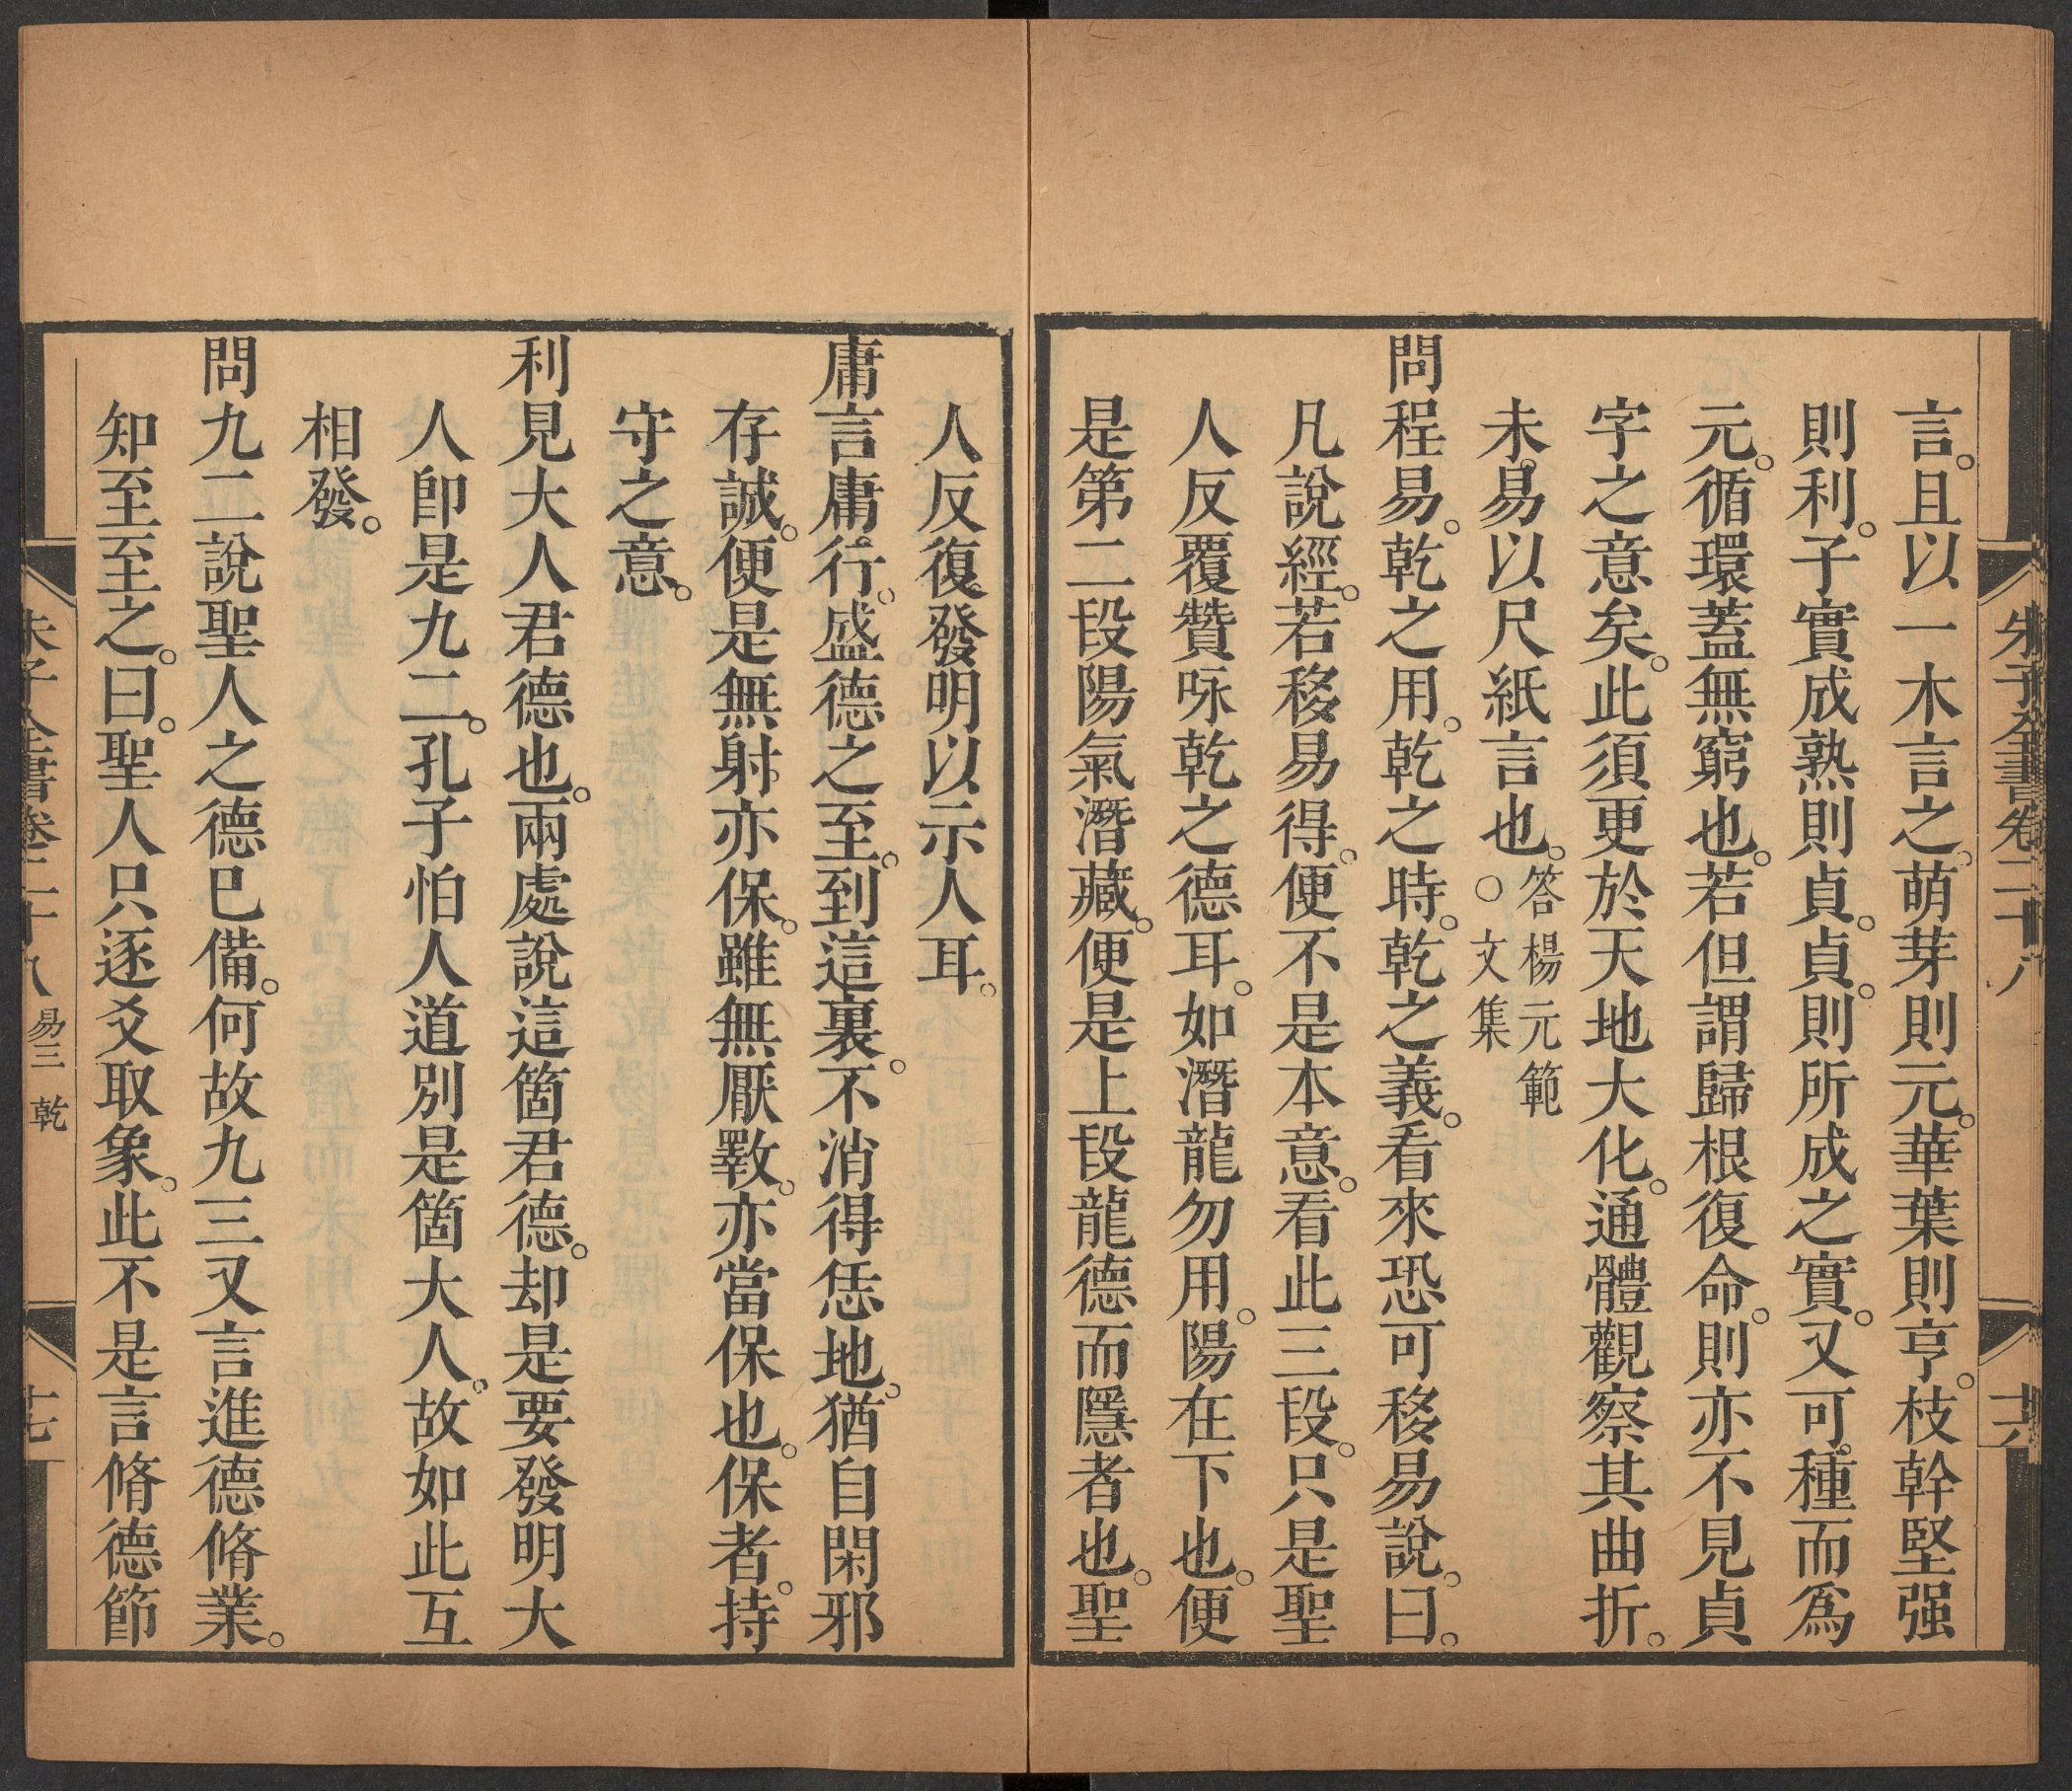 朱子全書卷二十八
十六
言。且以一木言之。萌芽則元。華葉則亨。枝幹堅强
則利。子實成熟則貞。貞。則所成之實。又可種而爲
元。循環蓋無窮也。若但謂歸根復命。則亦不見貞
字之意矣。此須更於天地大化。通體觀察其曲折。
未易以尺紙言也。○答楊元範文集
問程易。乾之用。乾之時。乾之義。看來恐可移易說。曰。
凡說經。若移易得。便不是本意。看此三段。只是聖
人反覆贊咏乾之德耳。如潛龍勿用。陽在下也。便
是第二段陽氣潛藏。便是上段龍德而隱者也。聖
人反復。發明以示人耳。
庸言庸行。盛德之至。到這裏。不消得恁地。猶自閑邪
存誠。便是無射亦保。雖無厭斁。亦當保也。保者。持
守之意。
利見大人君德也。兩處說這箇君德。却是要發明大
人卽是九二。孔子怕人道別是箇大人。故如此互
相發。
問九二說聖人之德已備。何故九三又言進德脩業。
知至至之。曰。聖人只逐爻取象。此不是言脩德節
朱子全書卷二十八 易三 乾
十七